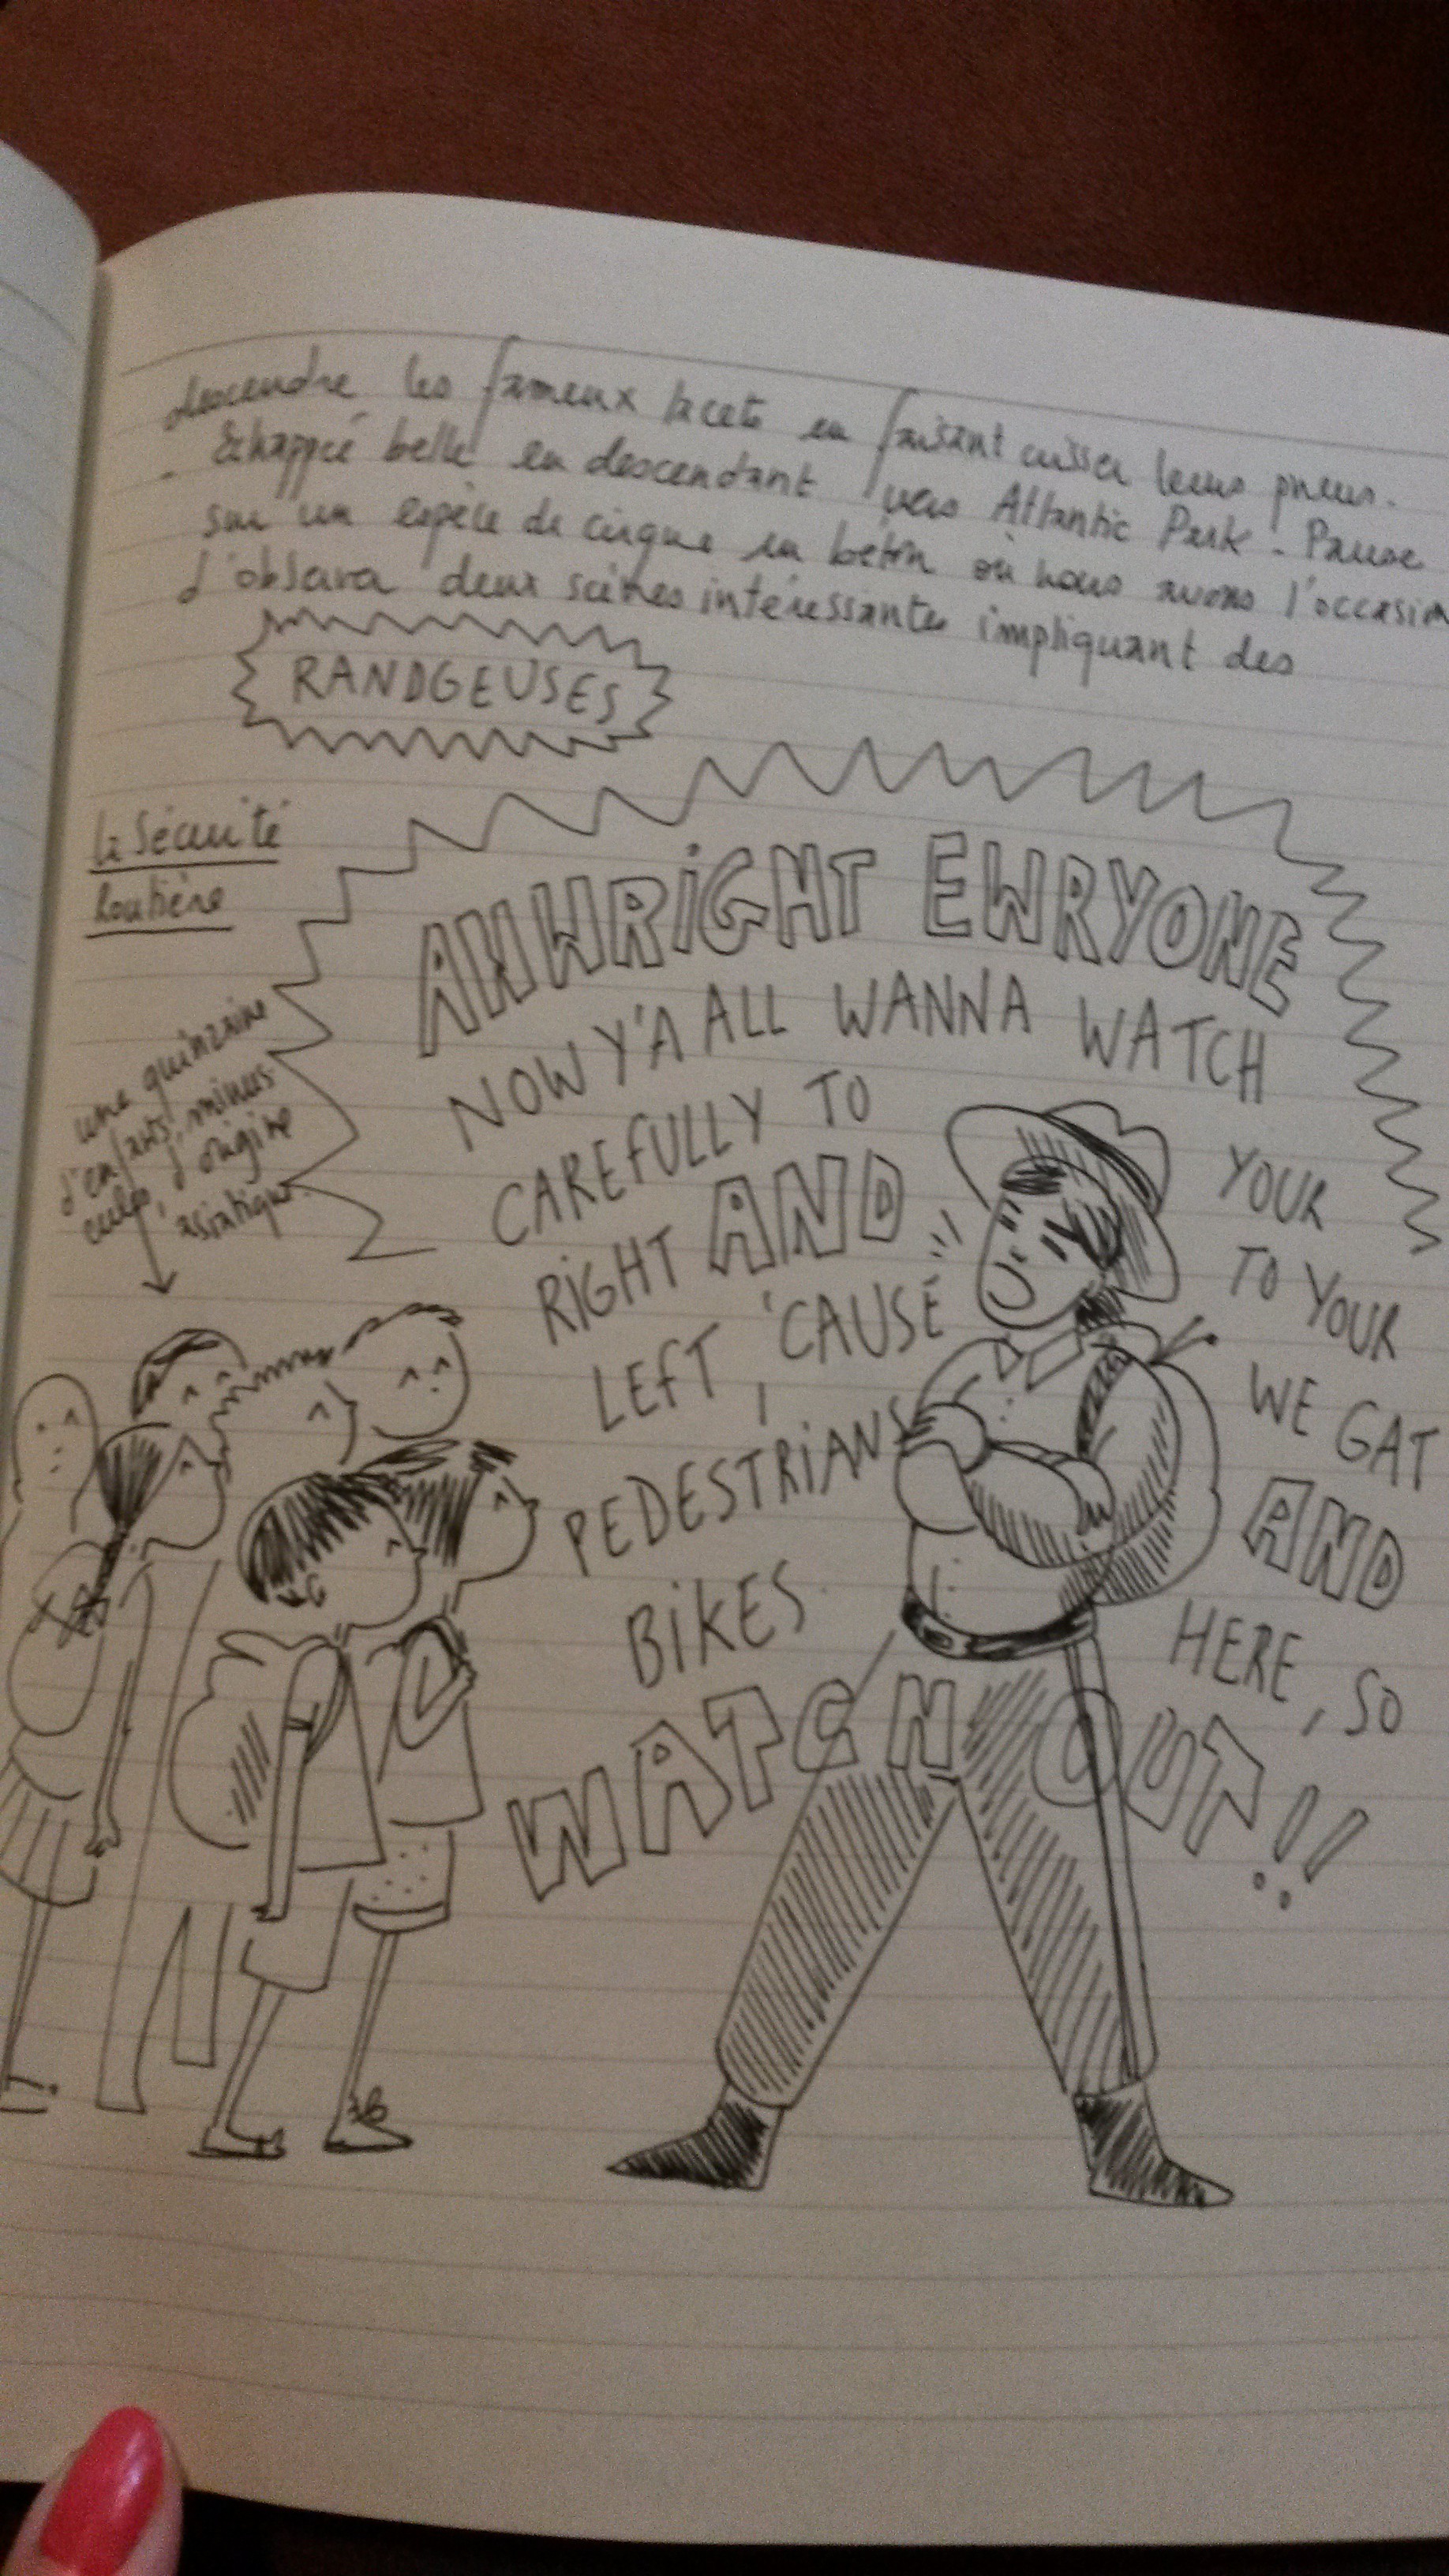 descendre les fameux lacets en faisant crisser leurs pneus.
- Echappé belle en descendant vers Atlantic Park. Pause
sur un espèce de cirque en béton où nous avons l'occasion
d'observer deux scènes intéressantes impliquant des
RANDGEUSES
la Sécurité
Routière
une quinzaine
d'enfants, minus-
cules, d'origine
asiatique
AWWRIGHT EWRYONE
NOW Y'A ALL WANNA WATCH
CAREFULLY TO YOUR
RIGHT AND TO YOUR
LEFT, 'CAUSE WE GAT
PEDESTRIANS AND
BIKES HERE, SO
WATCH OUT!!